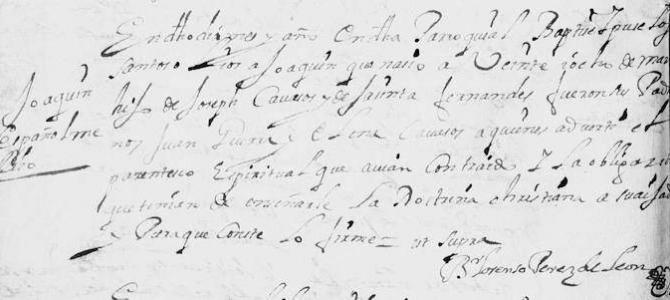 En dho dia mes y año en dha Parroquial Baptise Y puse los
Santos Oleos a Joaquin que nacio a Veinte y ocho de mar
hijo de Joseph Cavasos y de Jasinta fernandes fueron sus Pad
nos Juan y Elena Cavasos a quienes adverti el
parentesco Espiritual que avian Contraido Y La obligaz
que tenian de enseñarle La Doctrina christiana a su aijad
y Para que Conste lo firme = ut supra
Br Lorenso Perez de Leon
Joaquin
Español me